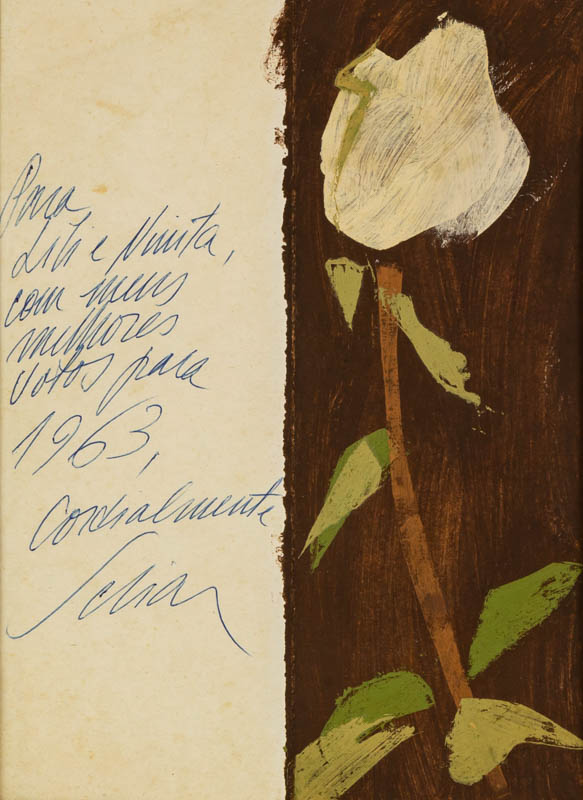 Para
Lili e Ninita,
com meus
melhores
votos para
1963,
Cordialmente
Scliar